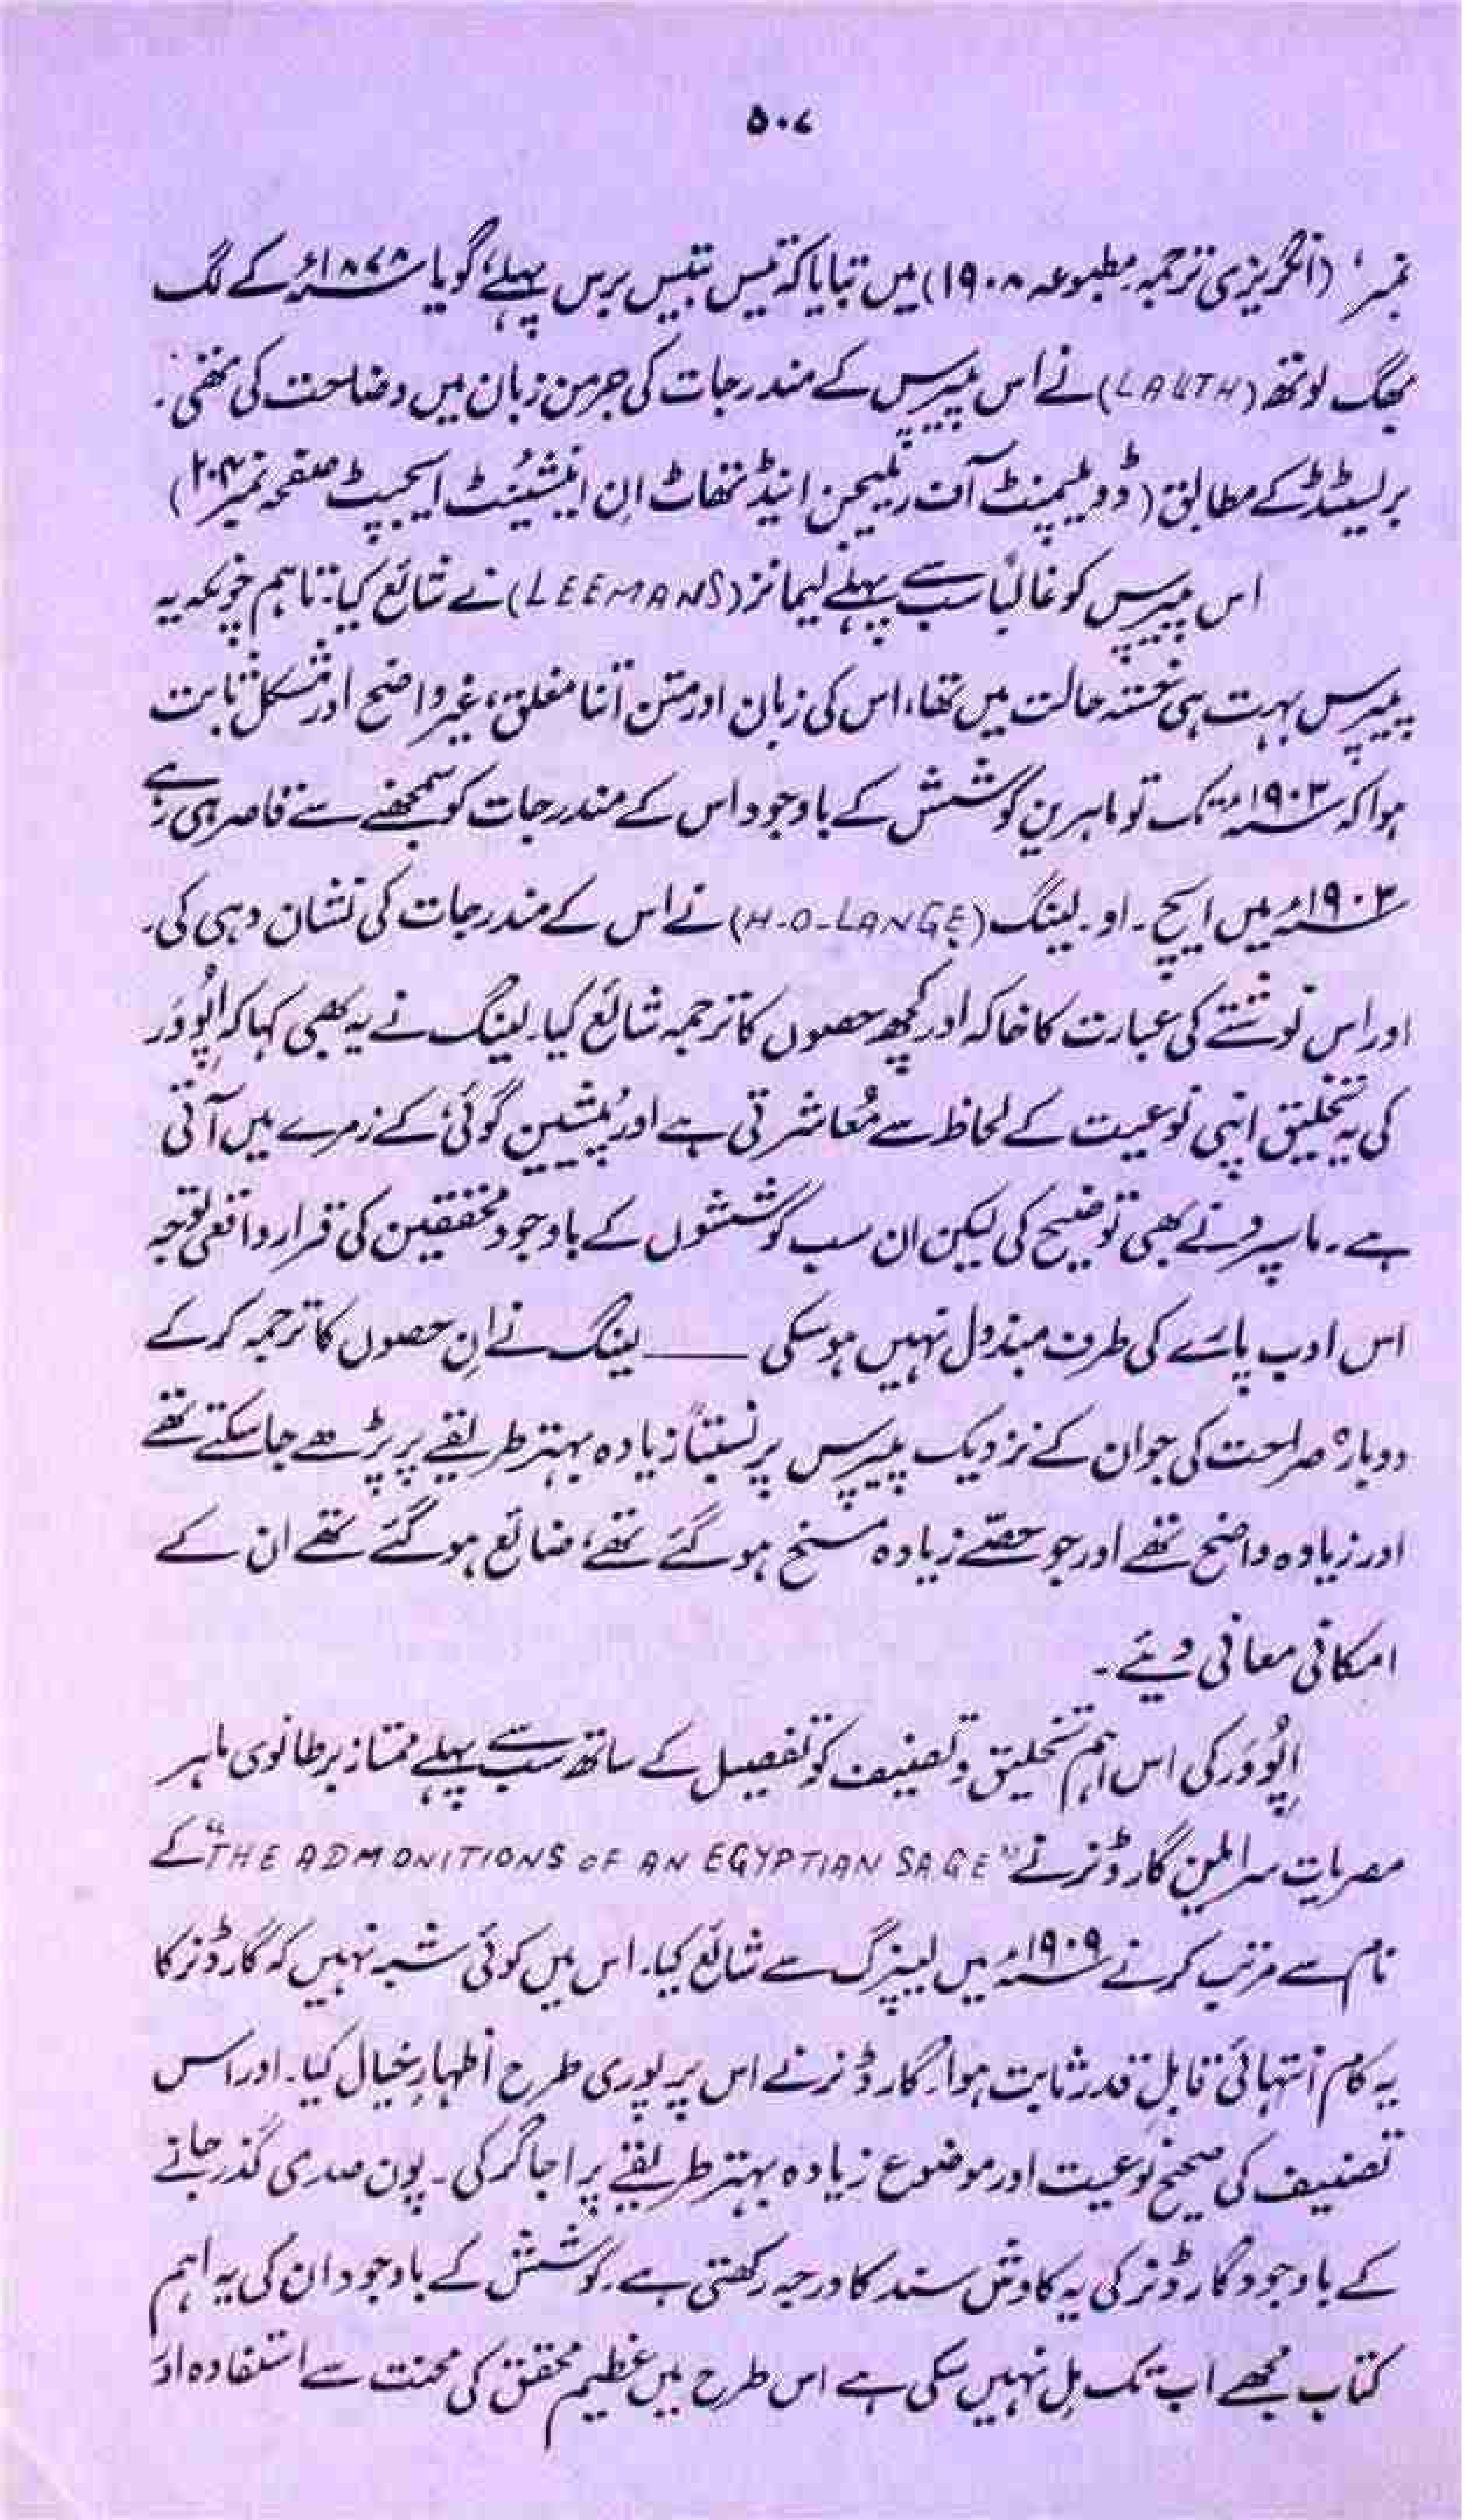 ۵۰۷
نمبر، (انگریزی ترجمہ مطبوعہ ۱۹۰۸) میں بتایا کہ تیس بتیس برس پہلے، گویا ۱۸۷۸ء کے لگ
بھگ لوتھ (LAUTH) نے اس پیپرس کے مندرجات کی جرمن زبان میں وضاحت کی تھی۔
بریسٹڈ کے مطابق (ڈوویلپمنٹ آف ریلیجن اینڈ تھاٹ اِن اینشیُنٹ ایجپٹ صفحہ نمبر ۲۰۴)
اس پیپرس کو غالباً سب سے پہلے لیمانز (LEEMANS) نے شائع کیا: تاہم چونکہ یہ
پیپرس بہت ہی خستہ حالت میں تھا، اس کی زبان اور متن اتنا مغلق، غیر واضح اور مشکل ثابت
ہوا کہ ۱۹۰۳ء تک تو ماہرین کوشش کے باوجود اس کے مندرجات کو سمجھنے سے قاصر ہی رہے
۱۹۰۳ء میں ایچ۔ او۔ لینگ (H-O-LANGE) نے اس کے مندرجات کی نشان دہی کی۔
اور اس نوشتے کی عبارت کا خاکہ اور کچھ حصوں کا ترجمہ شائع کیا۔ لینگ نے یہ بھی کہا کہ اِپُووَر
کی یہ تخلیق اپنی نوعیت کے لحاظ سے مُعاشرتی ہے اور پیشین گوئی کے زمرے میں آتی
ہے۔ ماسپرو نے بھی توضیح کی لیکن ان سب کوششوں کے باوجود محققین کی قرار واقعی توجہ
اس ادب پارے کی طرف مبذول نہیں ہو سکی ـــــ لینگ نے اِن حصوں کا ترجمہ کر کے
دوبارہ صراحت کی جو ان کے نزدیک پیپرس پر نسبتاً زیادہ بہتر طریقے پر پڑھے جا سکتے تھے
اور زیادہ واضح تھے اور جو حصّے زیادہ مسخ ہو گئے تھے، ضائع ہو گئے تھے ان کے
امکانی معانی دیئے۔
اِپُووَر کی اس اہم تخلیق و تصنیف کو تفصیل کے ساتھ سب سے پہلے ممتاز برطانوی ماہر
مصریات سر ایلین گارڈنر نے "THE ADMONITIONS OF AN EGYPTIAN SAGE" کے
نام سے مرتب کر نے ۱۹۰۹ء میں لیپزگ سے شائع کیا۔ اس میں کوئی شبہ نہیں کہ گارڈنر کا
یہ کام انتہائی قابلِ قدر ثابت ہوا۔ گارڈنر نے اس پر پوری طرح اظہارِ خیال کیا۔ اور اس
تصنیف کی صحیح نوعیت اور موضوع زیادہ بہتر طریقے پر اجاگر کی۔ پون صدی گذر جانے
کے باوجود گارڈنر کی یہ کاوش سند کا درجہ رکھتی ہے۔ کوشش کے باوجود ان کی یہ اہم
کتاب مجھے اب تک مِل نہیں سکی ہے اس طرح میں عظیم محقق کی محنت سے استفادہ اور